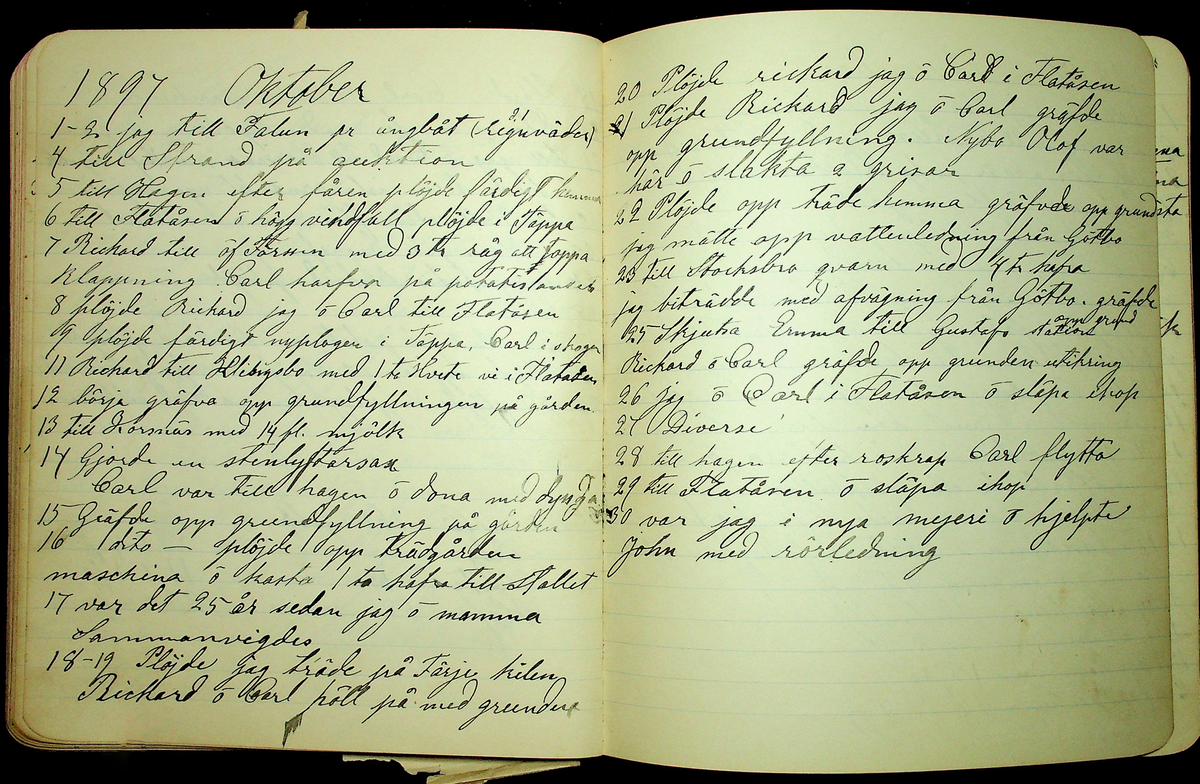 1897 Oktober
1-2 jag till Falun pr ångbåt (regnväder)
4 till Strand på auktion
5 till Hagen efter fåren plöjde färdigt hemma
6 till Flatåsen ö högg vindfall plöjde i Täppa
7 Richard till öf Forssen med 3 tr råg att
Klappning. Carl harfvor på potatislandet
8 plöjde Richard jag ö Carl till Flatåsen
9 plöjde färdigt nyplogen i Täppa, Carl i skogen
11 Richard till med 1 tr Hvete vi i Flatåsen
12 börja gräfva opp grundfyllningen på gården
13 till Korsnäs med 14 fl. mjölk
14 Gjorde en stenlyftarsax
Carl var till hagen ö dona med dynga
15 Gräfde opp grundfyllning på gården
16 dito — plöjde opp trädgården
maschina ö kasta 1 tr hafra till Stallet
17 var det 25 år sedan jag ö mamma
Sammanvigdes
18-19 Plöjde jag träde på Färje kilen
Richard ö Carl höll på med grunden
20 Plöjde rickard jag ö Carl i Flatåsen
21 Plöjde Rickard jag ö Carl gräfde
opp grundfyllning. Nybo Olof var
här ö slakta 2 grisar
22 Plöjde opp träde hemma gräfde opp
jag mätte opp vattenledning från Götbo
23 till Stocksbro qvarn med 4 tr hafra
jag biträdde med afvägning från Götbo. gräfde
om grund
25 Skjutsa Emma till Gustafs Station
Rickard ö Carl gräfde opp grunden utikring
26 jag ö Carl i Flatåsen ö släpa ihop
27 Diverse
28 till hagen efter roskrap Carl flytta
29 till Flatåsen ö släpa ihop
30 var jag i nya mejeri ö hjelpte
John med rörledning